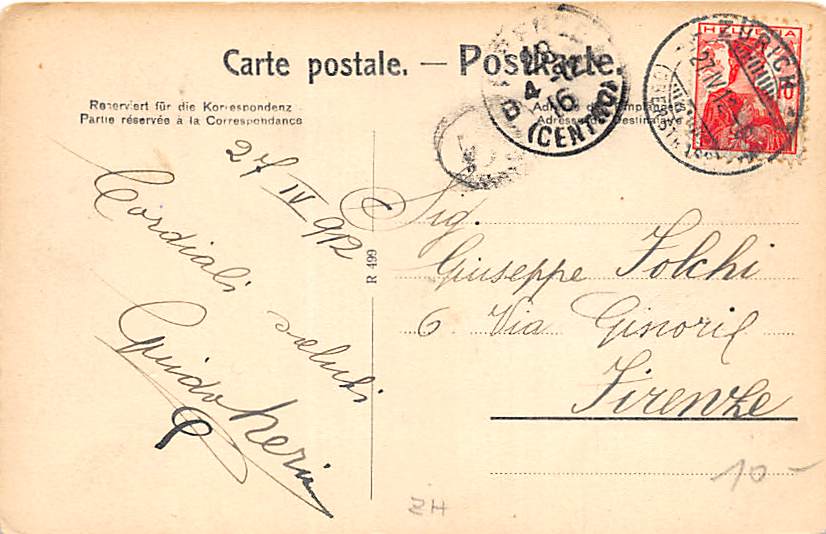 Carte postale. — Postkarte.
Reserviert für die Korrespondenz
Partie réservée à la Correspondance
Adresse des Empfängers
Adresse du Destinataire
HELVETIA
10
ZÜRICH
27.IV.12
(CENTRO)
16
27 IV 912
Cordiali
saluti
Guido Neri
R 499
Sig.
Giuseppe Folchi
6 Via Ginori
Firenze
10-
ZH